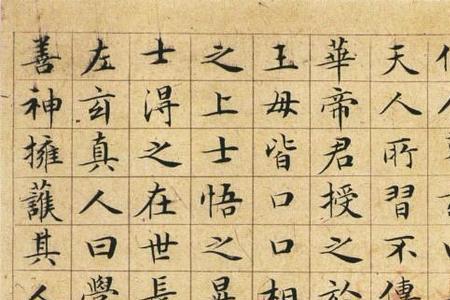 天人所習不傳
華帝君授之於
王母皆口口相
之上士悟之昇
士得之在世長
左玄真人曰學
善神擁護其人